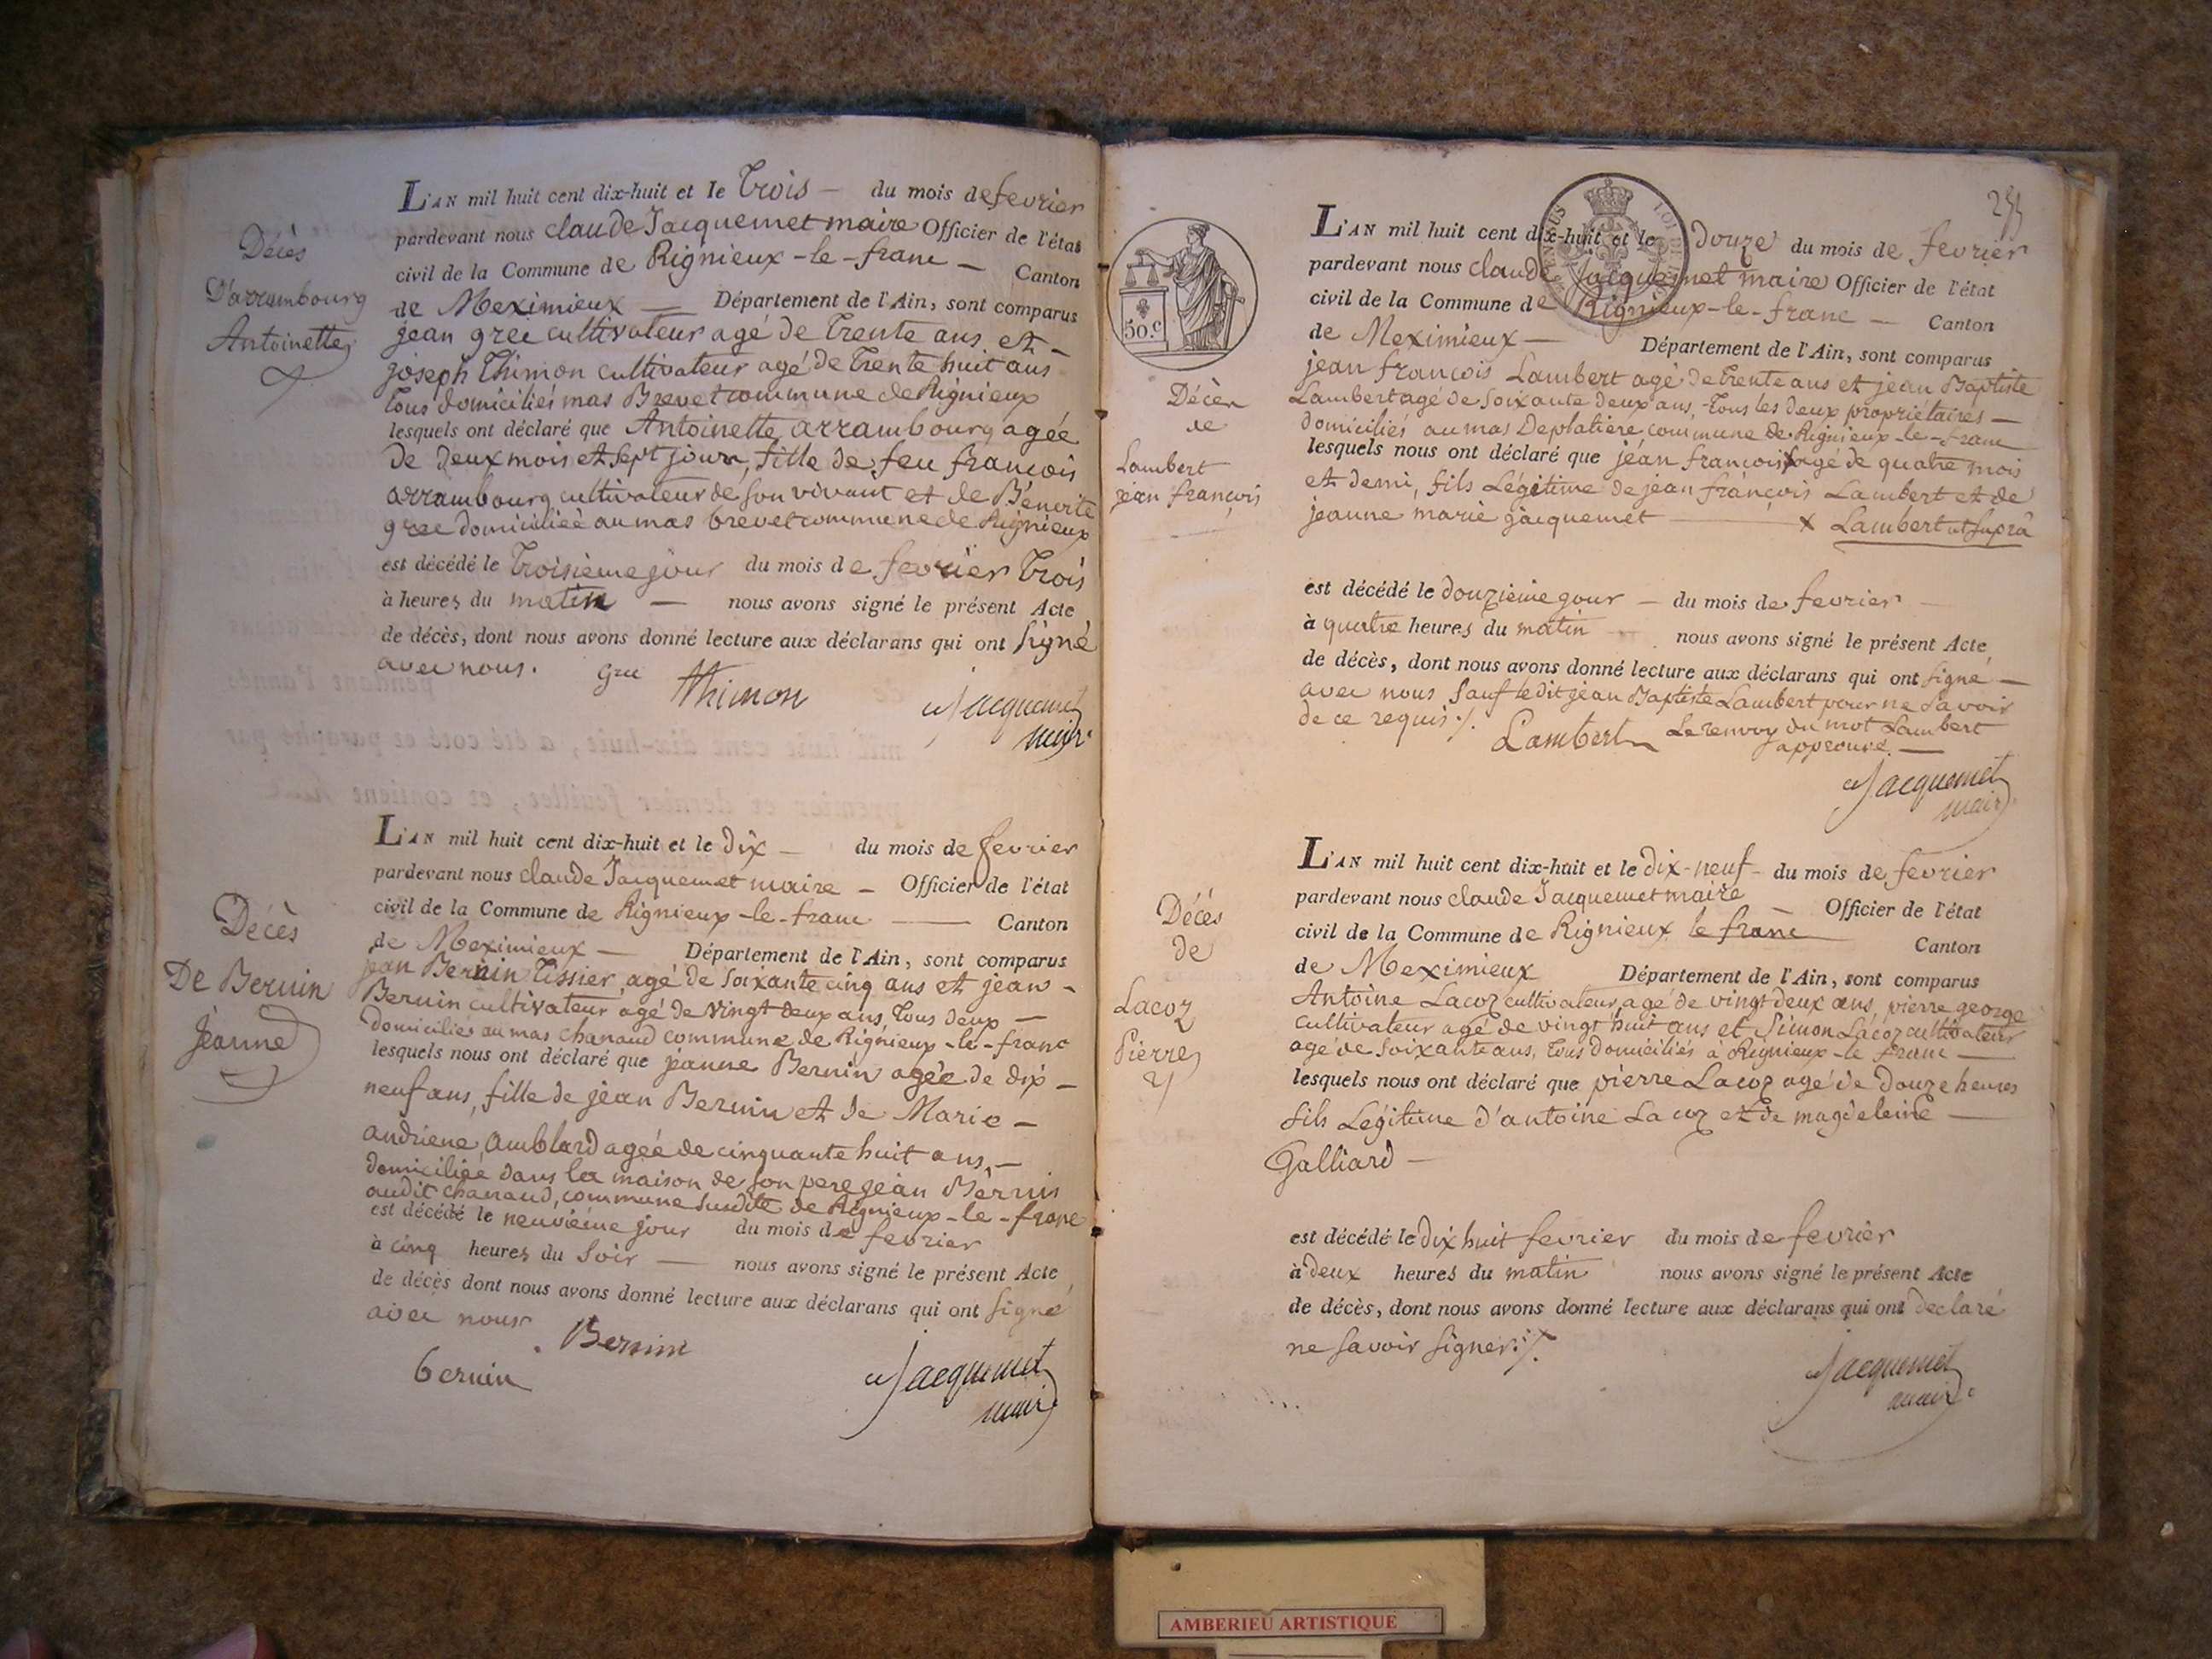 Décès
D'arrambourg
Antoinette
L'AN mil huit cent dix-huit et le trois — du mois de fevrier
pardevant nous claude Jacquemet maire Officier de l'état
civil de la Commune de Rignieux-le-franc — Canton
de Meximieux — Département de l'Ain, sont comparus
jean gree cultivateur agé de trente ans et —
joseph thimon cultivateur agé de trente huit ans
tous domiciliés mas Brevet commune de Rignieux
lesquels ont déclaré que Antoinette arrambourg agée
de deux mois et sept jours, fille de feu françois
arrambourg cultivateur de son vivant et de Benoite
gree domiciliée au mas brevet commune de Rignieux
est décédé le troisième jour du mois de fevrier trois
à heures du matin — nous avons signé le présent Acte
de décès, dont nous avons donné lecture aux déclarans qui ont signé
avec nous. Gree
thimon
Jacquemet
maire
Décès
De Bernin
Jeanne
L'AN mil huit cent dix-huit et le dix — du mois de fevrier
pardevant nous claude Jacquemet maire — Officier de l'état
civil de la Commune de Rignieux-le-franc — Canton
de Meximieux — Département de l'Ain, sont comparus
jean Bernin tissier, agé de soixante cinq ans et jean —
Bernin cultivateur agé de vingt deux ans, tous deux —
domiciliés au mas chanaud commune de Rignieux-le-franc
lesquels nous ont déclaré que jeanne Bernin agée de dix —
neuf ans, fille de jean Bernin et de Marie —
andriene amblard agée de cinquante huit ans, —
domiciliée dans la maison de son pere jean Bernin
audit chanaud, commune susdite de Rignieux-le-franc
est décédé le neuvième jour du mois de fevrier
à cinq heures du soir — nous avons signé le présent Acte
de décès dont nous avons donné lecture aux déclarans qui ont signé
avec nous
. Bernin
bernin
Jacquemet
maire
50 c.
Décès
de
Lambert
jean françois
L'AN mil huit cent dix-huit et le douze du mois de fevrier
pardevant nous claude Jacquemet maire Officier de l'état
civil de la Commune de Rignieux-le-franc — Canton
de Meximieux — Département de l'Ain, sont comparus
jean françois Lambert agé de trente ans et jean Baptiste
Lambert agé de soixante deux ans, tous les deux proprietaires —
domiciliés au mas Deplatiere commune de Rignieux-le-franc
lesquels nous ont déclaré que jean françois x agé de quatre mois
et demi, fils Légitime de jean françois Lambert et de
jeanne marie jacquemet — x Lambert ut suprà
est décédé le douzieme jour — du mois de fevrier —
à quatre heures du matin nous avons signé le présent Acte
de décès, dont nous avons donné lecture aux déclarans qui ont signé —
avec nous sauf ledit jean Baptiste Lambert pour ne savoir
de ce requis ./.
Lambert
Le renvoy du mot Lambert
approuvé. —
Jacquemet
maire
Décès
de
Lacoz
Pierre
L'AN mil huit cent dix-huit et le dix-neuf — du mois de fevrier
pardevant nous claude Jacquemet maire — Officier de l'état
civil de la Commune de Rignieux le franc Canton
de Meximieux Département de l'Ain, sont comparus
Antoine Lacoz cultivateur, agé de vingt deux ans, pierre george
cultivateur agé de vingt huit ans et Simon Lacoz cultivateur
agé de soixante ans, tous domiciliés à Rignieux-le franc —
lesquels nous ont déclaré que pierre Lacoz agé de douze heures
fils Légitime d'antoine Lacoz et de magdeleine —
Galliard —
est décédé le dix huit fevrier du mois de fevrier
à deux heures du matin nous avons signé le présent Acte
de décès, dont nous avons donné lecture aux déclarans qui ont declaré
ne savoir signer ./.
Jacquemet
maire
AMBERIEU ARTISTIQUE